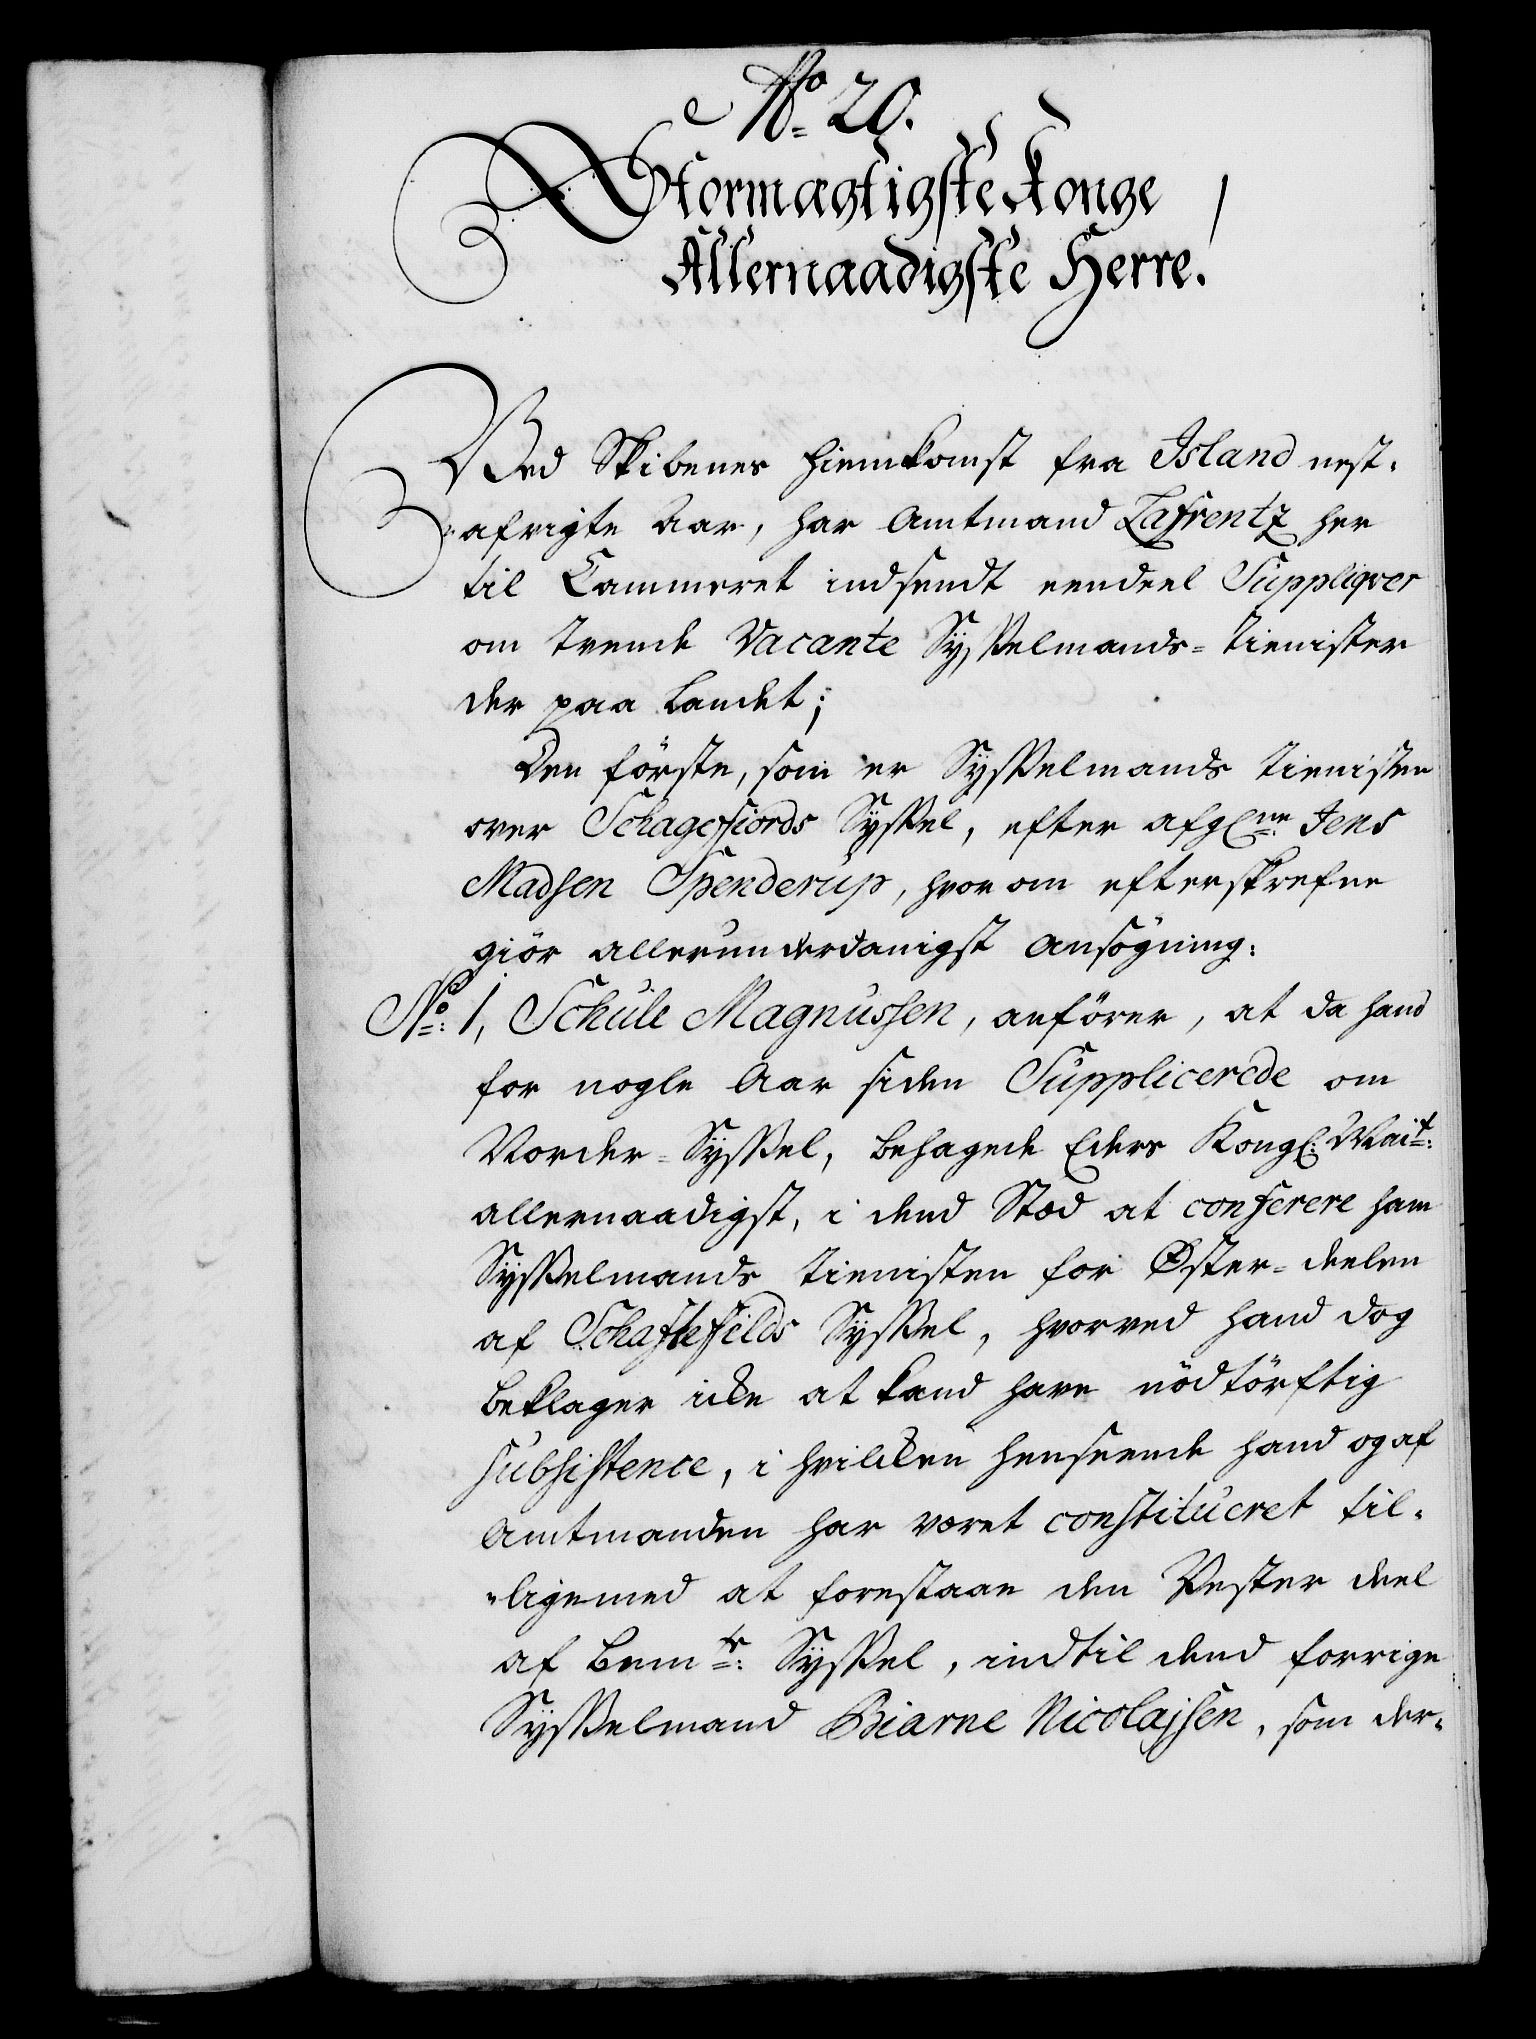 No. 20.
Stormægtigste Konge
Allernaadigste Herre!
Ved Skibenes Hiemkomst fra Island nest-
afvigte Aar, har Amtmand Lafrentz her
til Cammeret indsendt eendeel Suppliqver
om trende Vacante Sysselmands-tienister
der paa Landet;
Den förste, som er Sysselmands tienisten
over Schagefiords Syssel, efter afgl:ne Jens
Madsen Spenderup, hvorom efterskrefne
giör allerunderdanigst Ansögning:
No: 1, Schule Magnussen, anförer, at da hand
for nogle Aar siden Supplicerede om
Norder-Syssel, behagede Eders Kongl: Mait:
allernaadigst, i dend Stæd at conferere ham
Sysselmands tienisten for Øster-deelen
af Schaftefields Syssel, hvorved hand dog
beklager icke at kand have nödtörftig
subsistence, i hvilcken henseende hand og af
Amtmanden har været constitueret til-
ligemed at forestaae den Vester deel
af bem:te Syssel, indtil dend forrige
Sysselmand Biarne Nicolajsen, som der-